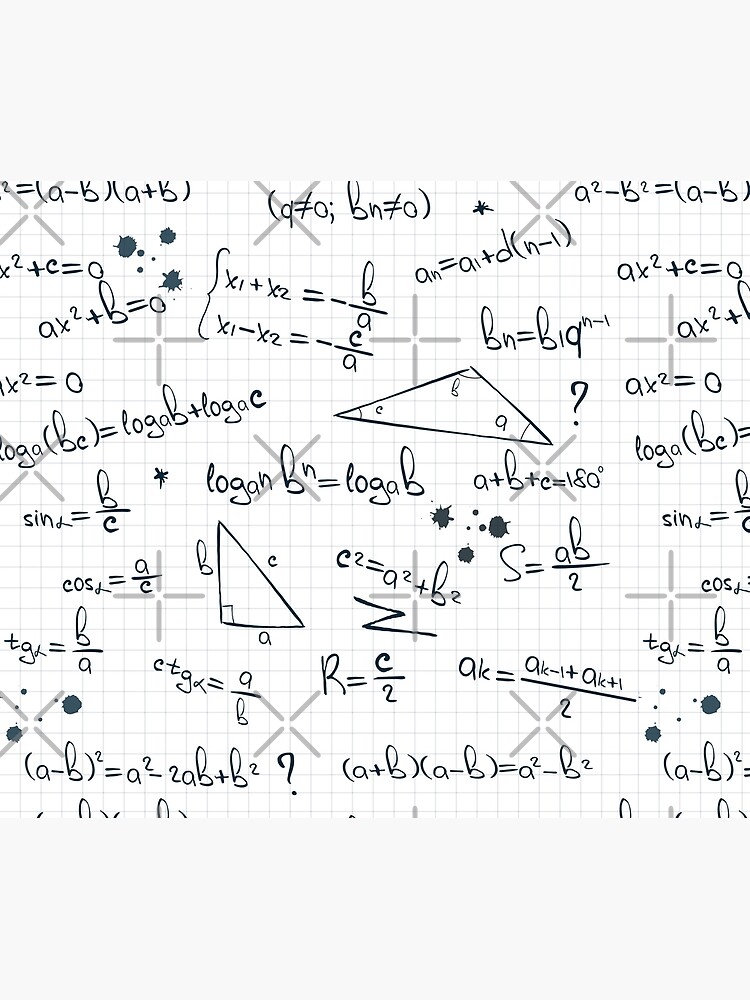 ²=(a-b)(a+b)
(q≠0; bn≠0)
*
a²-b²=(a-b)
x²+c=0
{x₁+x₂=-b/a
x₁-x₂=-c/a
aₙ=a₁+d(n-1)
ax²+c=0
ax²+b=0
bₙ=b₁qⁿ⁻¹
ax²+b
ax²=0
c
b
a
?
ax²=0
logₐ(bc)=logₐb+logₐc
logₐ(bc)=
*
logₐₙbⁿ=logₐb
a+b+c=180°
sinα=b/c
sinα=b/c
b
c
a
c²=a²+b²
Σ
S=ab/2
cosα=a/c
cosα=
tgα=b/a
tgα=b/a
ctgα=a/b
R=c/2
aₖ=aₖ₋₁+aₖ₊₁/2
(a-b)²=a²-2ab+b²
?
(a+b)(a-b)=a²-b²
(a-b)²=